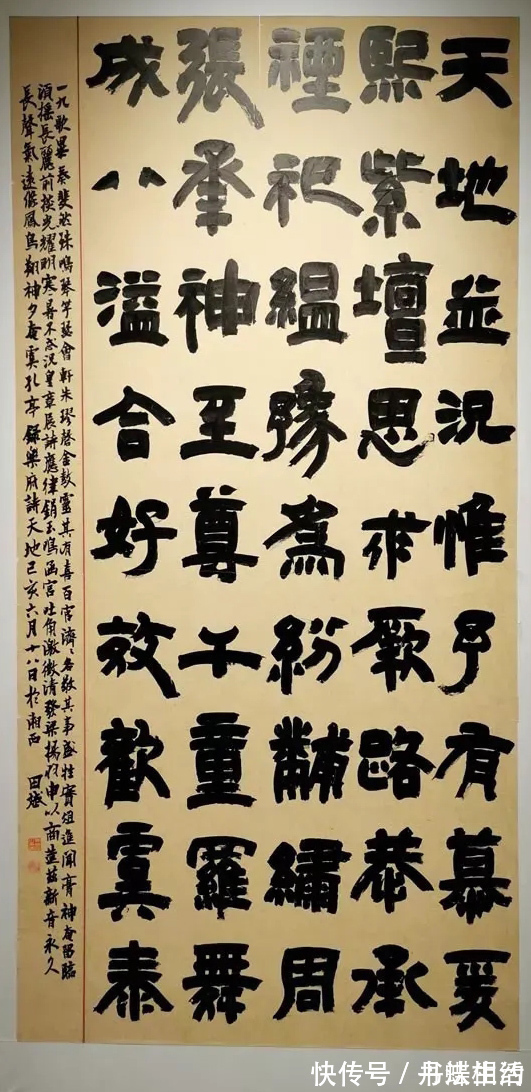 天地並況惟予有慕爰
熙紫壇思求厥路恭承
禋祀縕豫為紛黼繡周
張承神至尊千重羅舞
成八溢合好效歡虞泰
一九歌畢奏斐然殊鳴琴竽瑟會軒朱璆磬金鼓靈其有喜百官濟々各敬其事盛牲實俎進聞膏神奄留臨
須搖長麗前掞光耀明寒暑不忒況皇章展詩應律鋗玉鳴函宮吐角激徵清發梁揚羽申以商造茲新音永久
長聲氣遠條鳳鳥翔神夕奄虞孔享 錄樂府詩天地己亥六月十八日於湘西 田
快传号 /